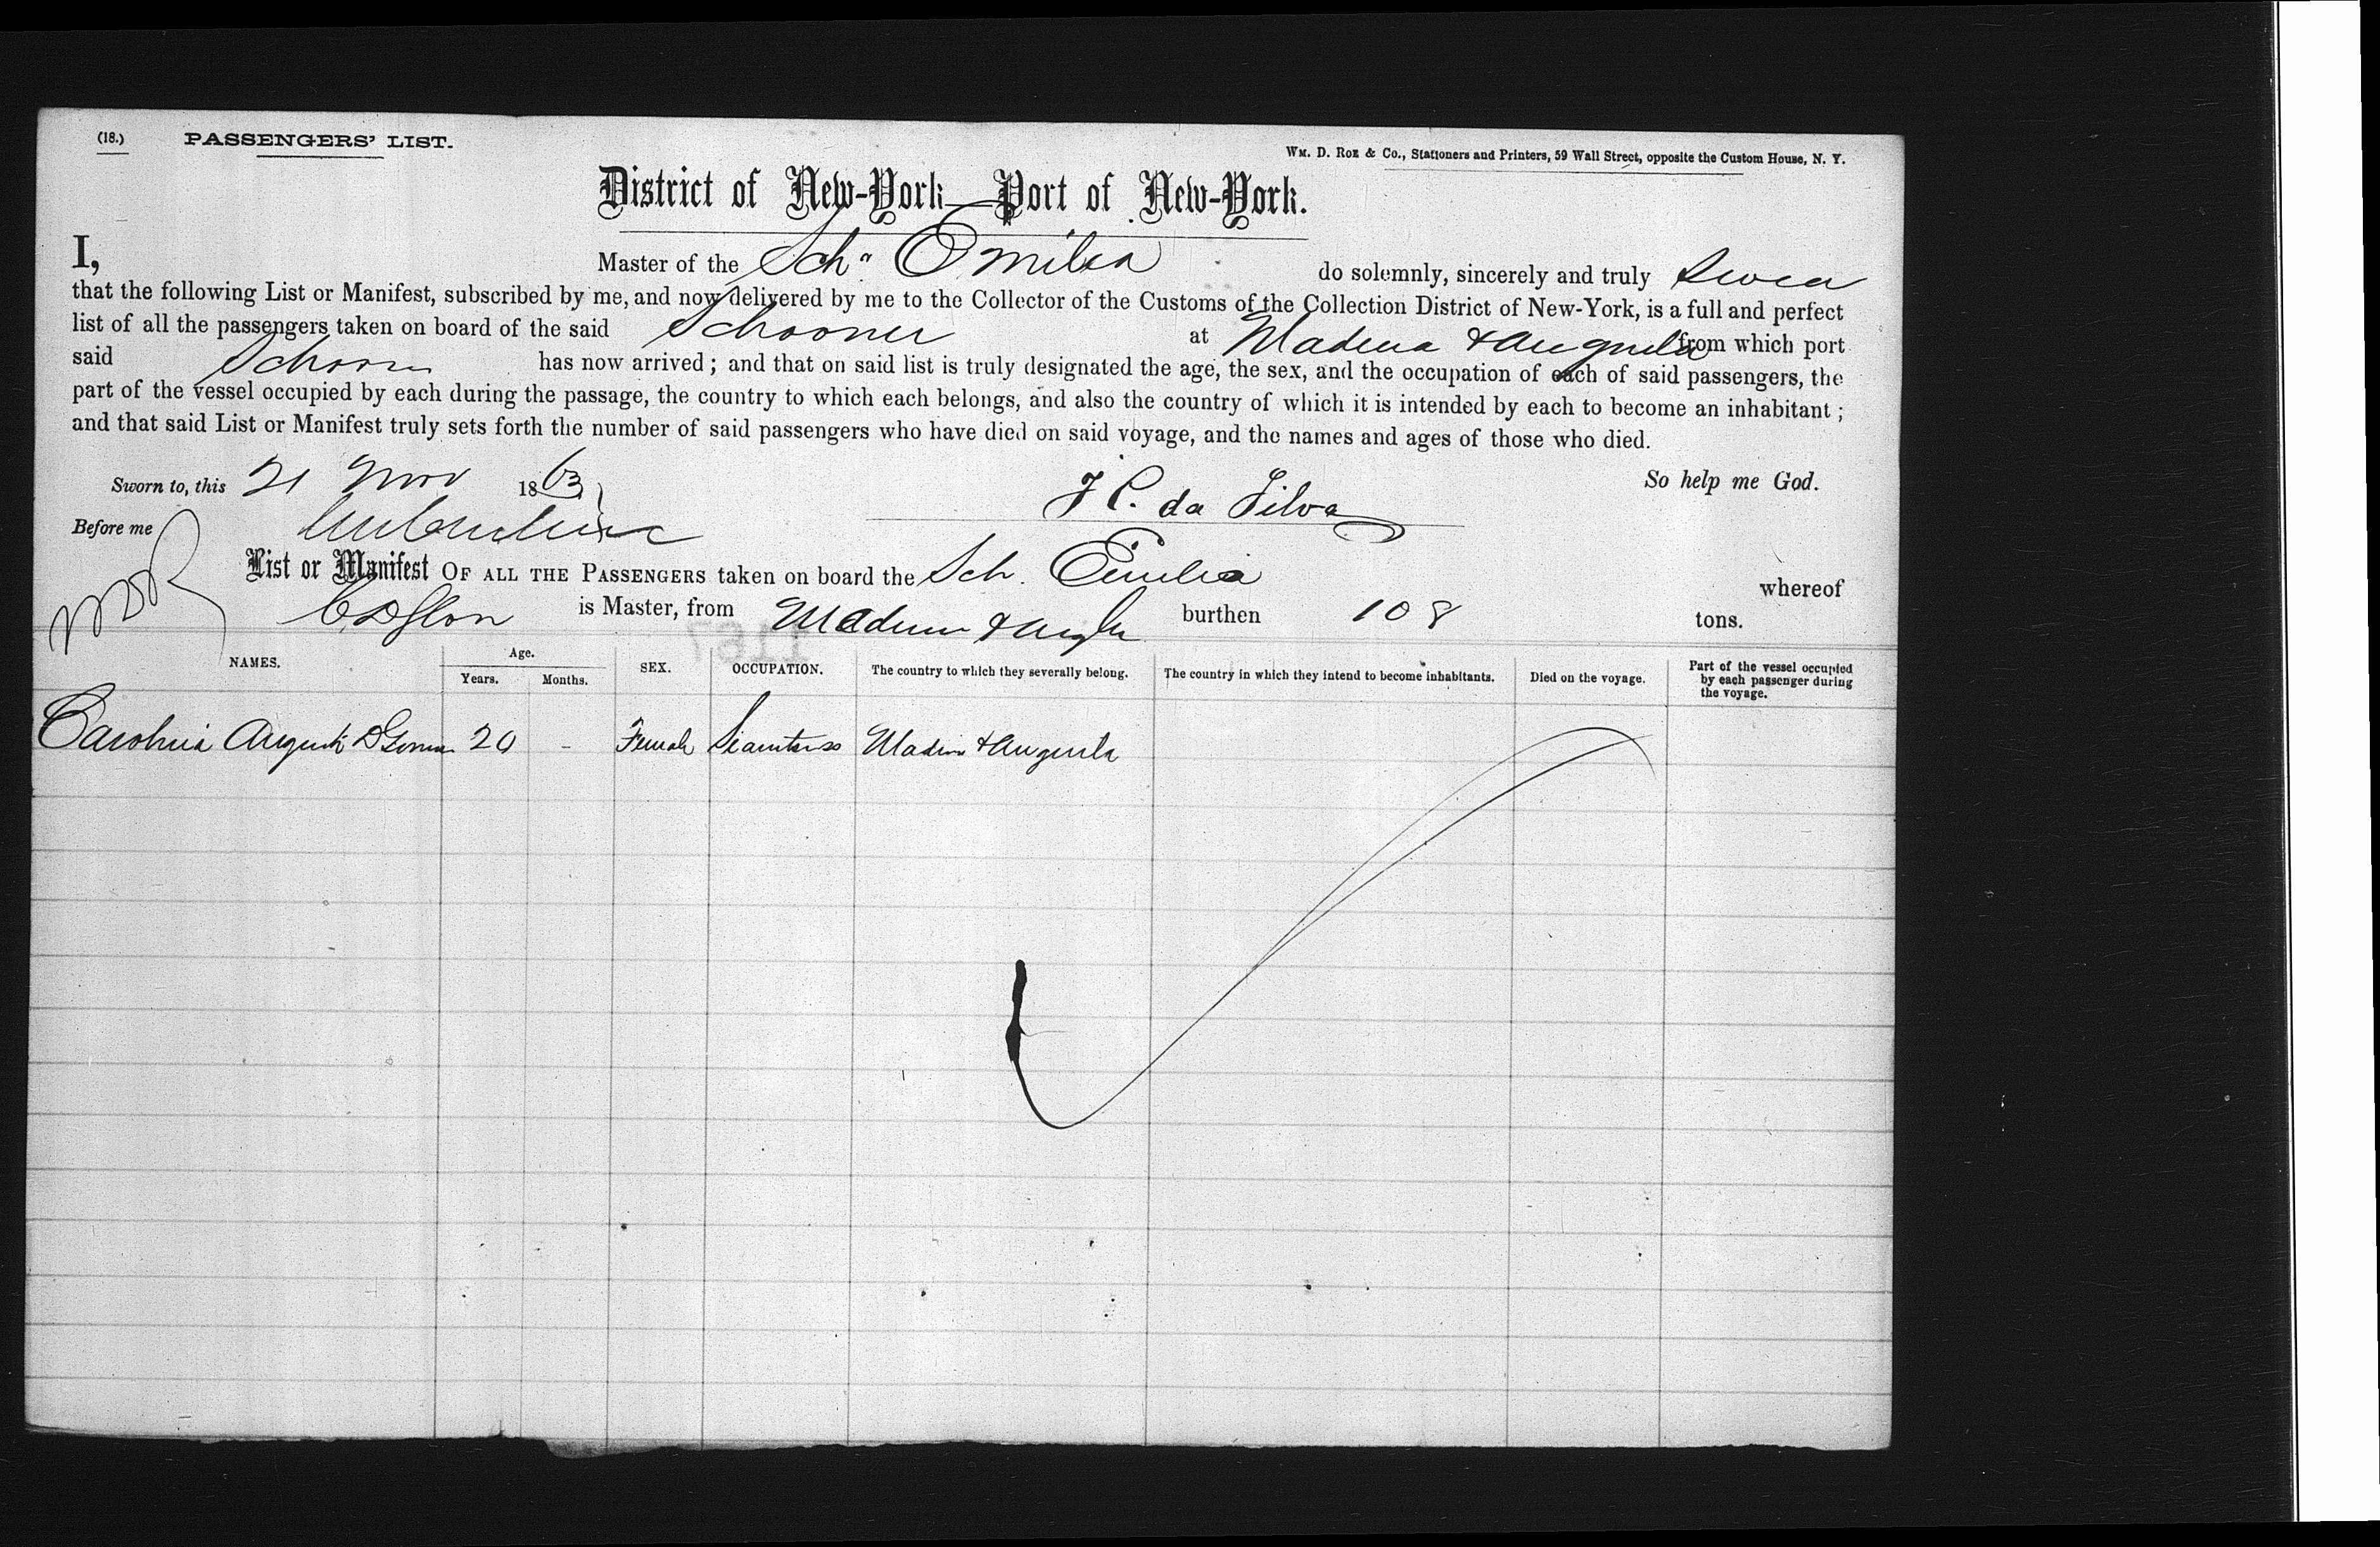 (18.) PASSENGERS' LIST.
Wm. D. Roe & Co., Stationers and Printers, 59 Wall Street, opposite the Custom House, N. Y.
District of New-York—Port of New-York.
I, Master of the Schr Emilia do solemnly, sincerely and truly swear
that the following List or Manifest, subscribed by me, and now delivered by me to the Collector of the Customs of the Collection District of New-York, is a full and perfect
list of all the passengers taken on board of the said Schooner at Madeira & from which port
said Schoon has now arrived; and that on said list is truly designated the age, the sex, and the occupation of each of said passengers, the
part of the vessel occupied by each during the passage, the country to which each belongs, and also the country of which it is intended by each to become an inhabitant;
and that said List or Manifest truly sets forth the number of said passengers who have died on said voyage, and the names and ages of those who died.
Sworn to, this 21 Nov 1863 So help me God.
J C. da Silva
Before me
List or Manifest OF ALL THE PASSENGERS taken on board the Sch. Emilia whereof
is Master, from burthen 108 tons.
NAMES. Age. Years. Months. SEX. OCCUPATION. The country to which they severally belong. The country in which they intend to become inhabitants. Died on the voyage. Part of the vessel occupied by each passenger during the voyage.
20 - Female